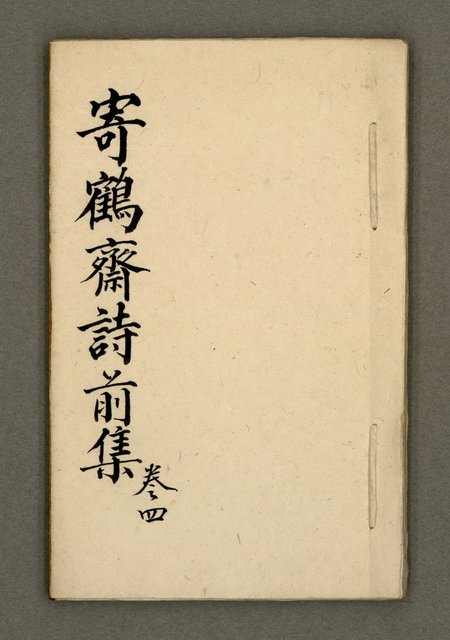 寄鶴齋詩前集
卷四